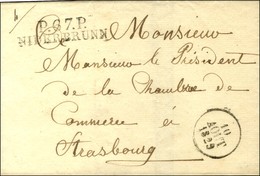 P.67.P.
NIEDERBRUNN
Monsieur
Monsieur le Président
de la Chambre de
Commerce à
Strasbourg
10
AOUT
1829